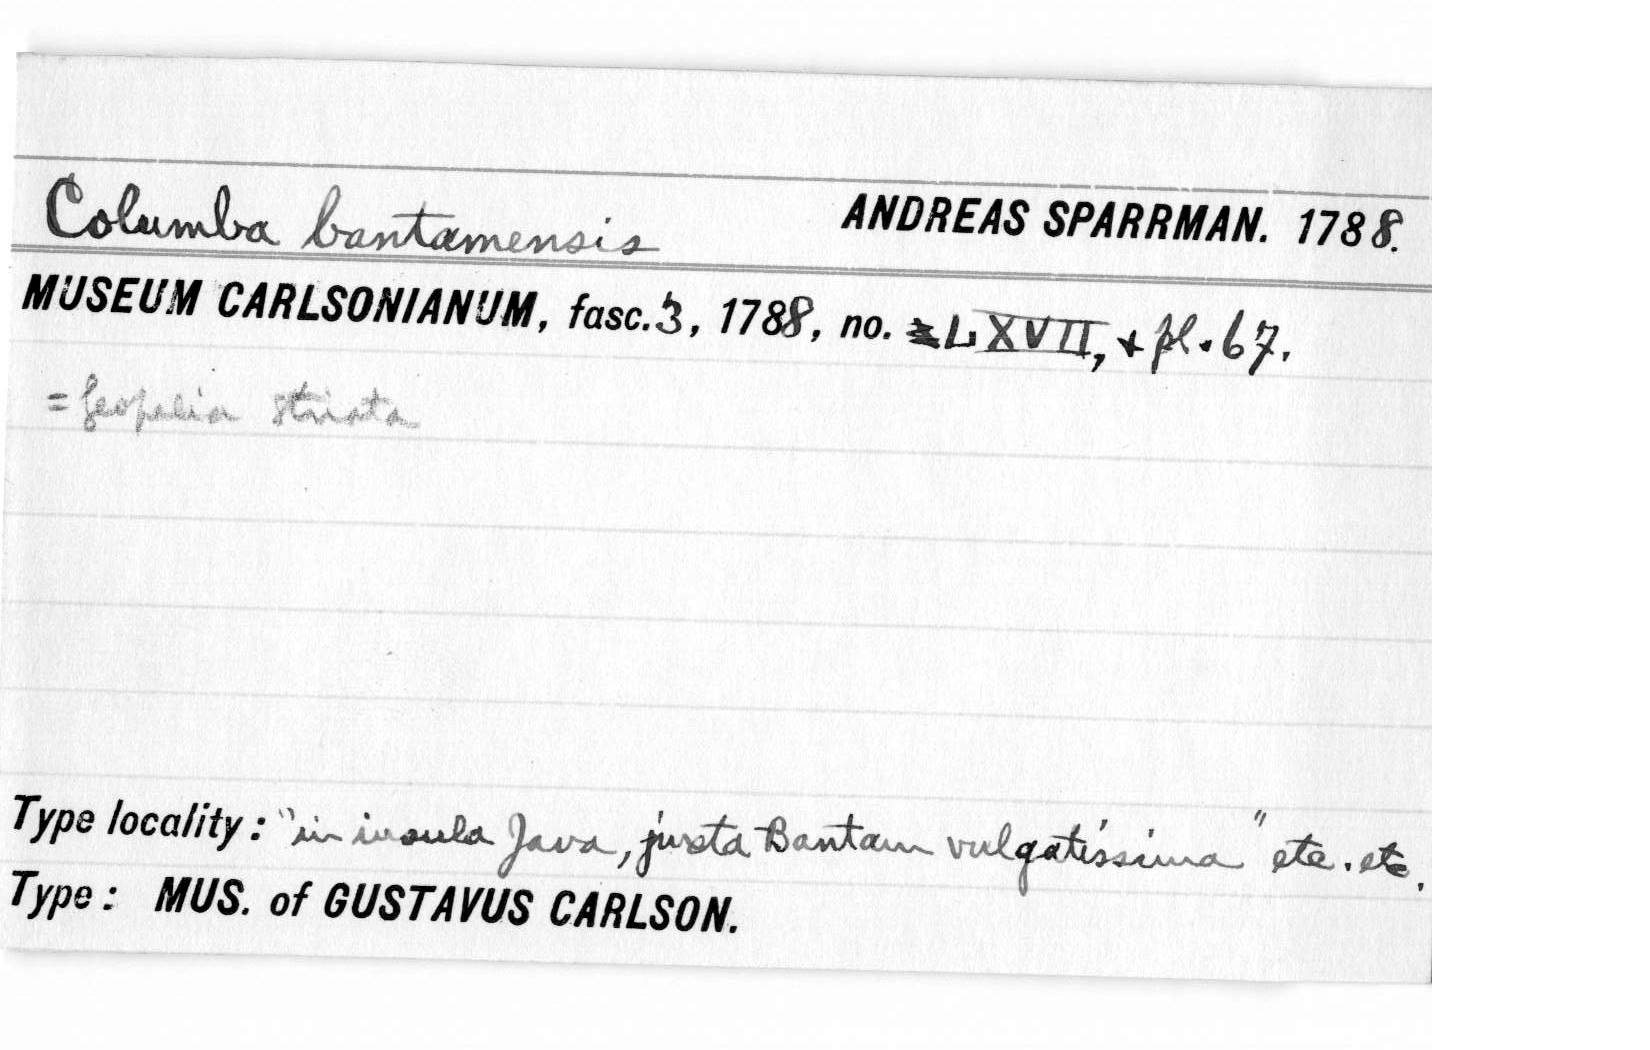 Columba bantamensis ANDREAS SPARRMAN. 1788.
MUSEUM CARLSONIANUM, fasc. 3, 1788, no. LXVII, + pl. 67.
= Geopelia striata
Type locality: "in insula Java, juxta Bantam vulgatissima" etc. etc.
Type: MUS. of GUSTAVUS CARLSON.